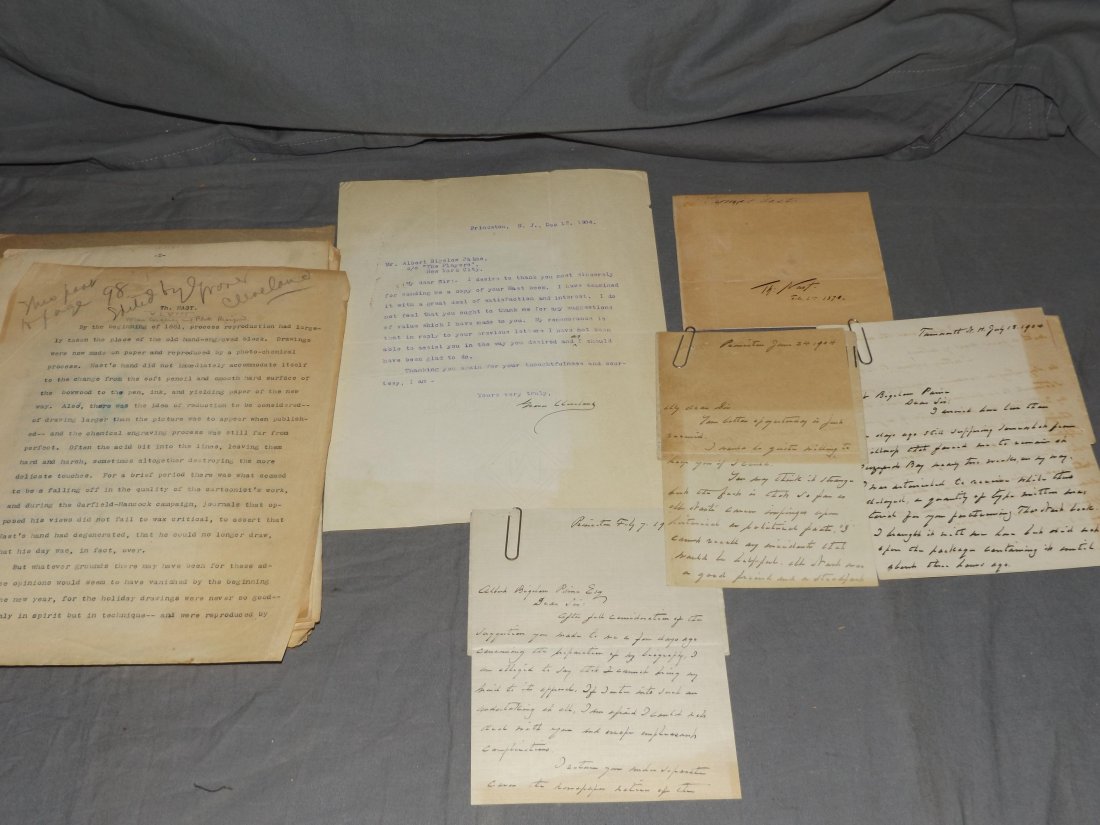 This part
to page 98
edited by Grover
Cleveland
-2-
Th. NAST.
By the beginning of 1881, process reproduction had large-
ly taken the place of the old hand-engraved block. Drawings
were now made on paper and reproduced by a photo-chemical
process. Nast's hand did not immediately accommodate itself
to the change from the soft pencil and smooth hard surface of
the boxwood to the pen, ink, and yielding paper of the new
way. Also, there was the idea of reduction to be considered--
of drawing larger than the picture was to appear when publish-
ed-- and the chemical engraving process was still far from
perfect. Often the acid bit into the lines, leaving them
hard and harsh, sometimes altogether destroying the more
delicate touches. For a brief period there was what seemed
to be a falling off in the quality of the cartoonist's work,
and during the Garfield-Hancock campaign, journals that op-
posed his views did not fail to wax critical, to assert that
Nast's hand had degenerated, that he could no longer draw,
that his day was, in fact, over.
But whatever grounds there may have been for these ad-
se opinions would seem to have vanished by the beginning
the new year, for the holiday drawings were never so good--
ly in spirit but in technique-- and were reproduced by
Princeton, N. J., Dec 1904.
Mr. Albert Bigelow Paine,
c/o "The Players",
New York City.
My dear Sir: I desire to thank you most sincerely
for sending me a copy of your Nast book. I have examined
it with a great deal of satisfaction and interest. I do
not feel that you ought to thank me for any suggestions
of value which I have made to you. My remembrance is
that in reply to your previous letters I have not been
able to assist you in the way you desired and I should
have been glad to do.
Thanking you again for your thoughtfulness and cour-
tesy, I am -
Yours very truly,
Grover Cleveland
Th. Nast
Princeton June 24 1904
My dear Sir
Your letter of yesterday is just
received.
I would be quite willing to
help you if I could.
You may think it strange
but the fact is that so far as
Mr Nast's career
historical or political facts, I
cannot recall any incidents that
would be helpful. Mr Nast was
a good friend and a steadfast
Tamworth N.H. July 18. 1904
Bigelow Paine
Dear Sir:
I arrived here less than
days ago still suffering somewhat from
that forced me to remain at
Buzzards Bay nearly two weeks, on my way.
I was astonished to receive while thus
delayed, a quantity of type written mat-
ter from you pertaining The Nast book
I brought it with me here but did not
open the package containing it until
about three hours ago.
Princeton Feby 7. 19
Albert Bigelow Paine Esq
Dear Sir:
After full consideration of the
suggestion you made to me a few days ago
concerning the preparation of my biography, I
am obliged to say that I cannot bring my
mind to its approval. If I enter into such an
undertaking at all, I am afraid I could not
deal with you and escape unpleasant
complications.
I return you under separate
cover the newspaper notices of the